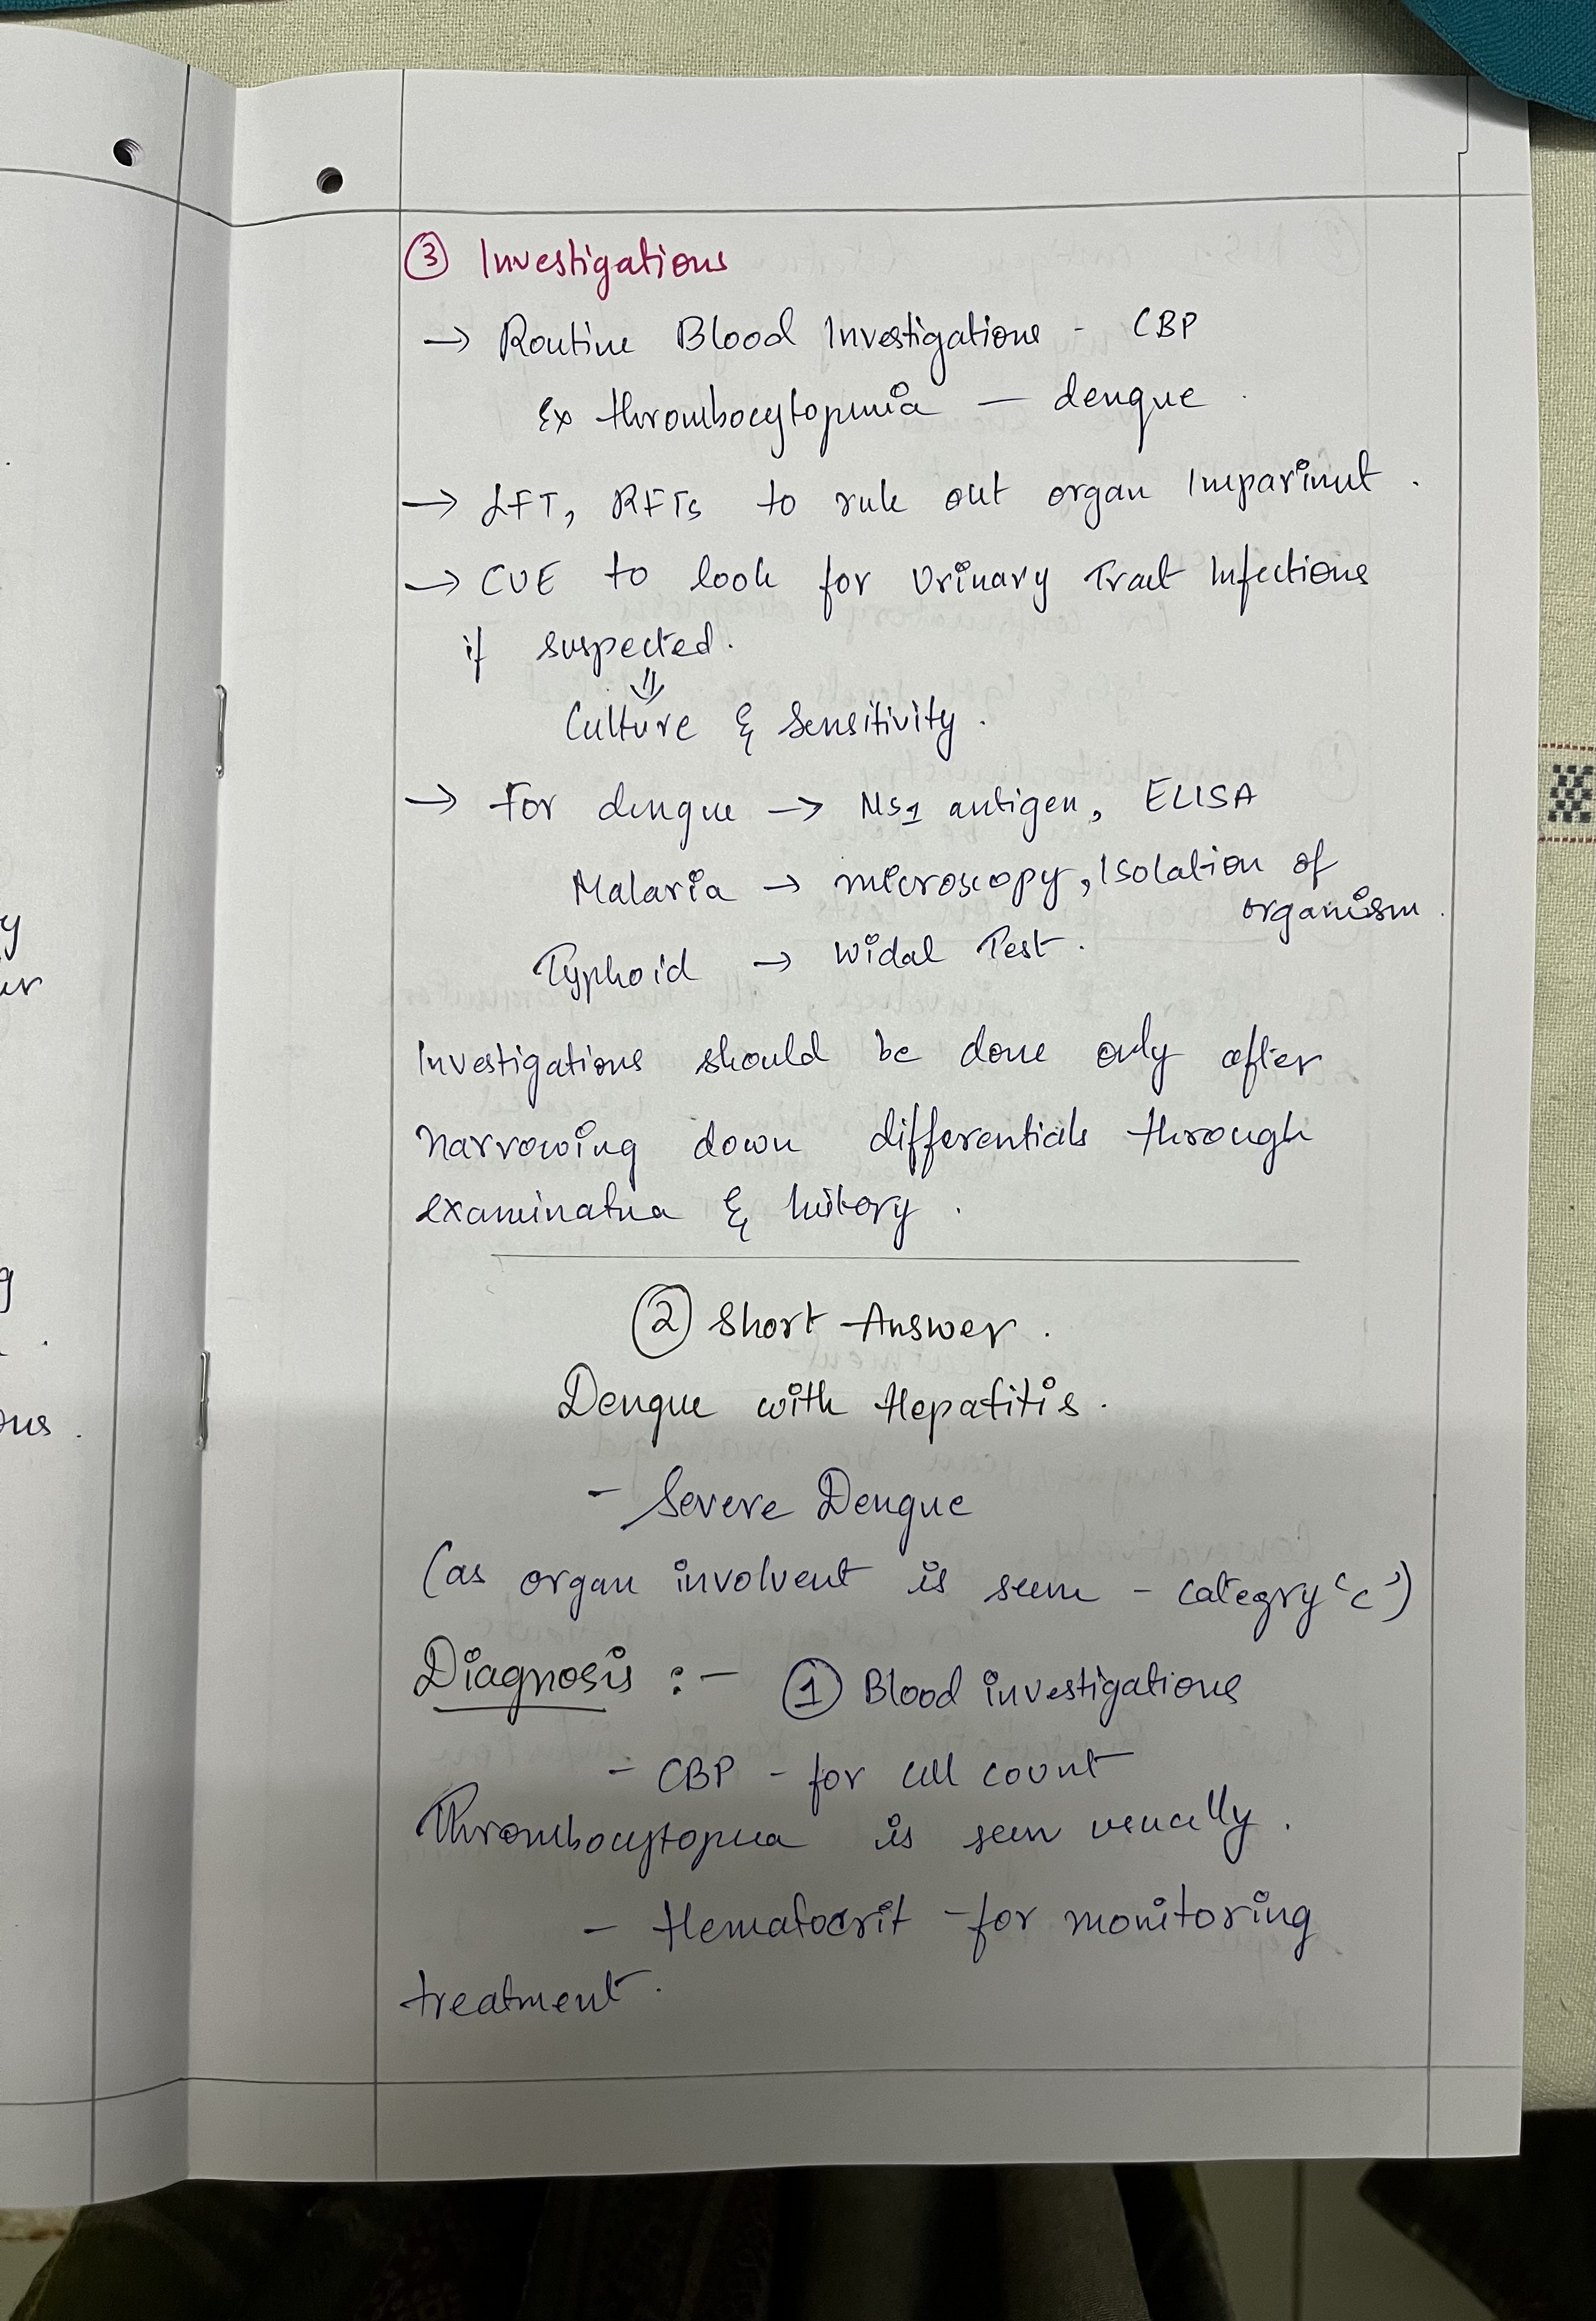 ③ Investigations
→ Routine Blood Investigations - CBP
Ex thrombocytopenia — dengue.
→ LFT, RFTs to rule out organ Imparimut.
→ CUE to look for Urinary Tract Infections
if suspected.
⇓
Culture & Sensitivity.
→ For dengue → NS1 antigen, ELISA
Malaria → microscopy, Isolation of
organism.
Typhoid → Widal Test.
Investigations should be done only after
narrowing down differentials through
examination & history.
② Short Answer.
Dengue with Hepatitis.
- Severe Dengue
(as organ involvent is seen - categry 'c')
Diagnosis :- ① Blood investigations
- CBP - for cell count
Thrombocytopenia is seen usually.
- Hematocrit - for monitoring
treatment.
y
er
g
ous.